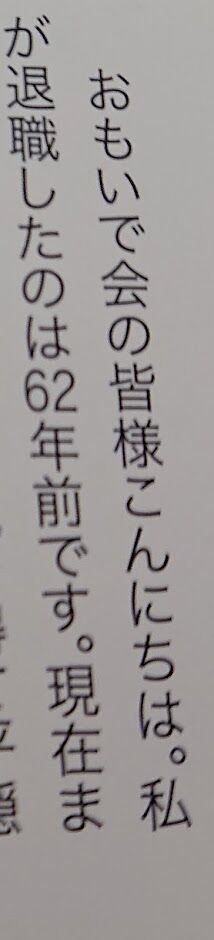 おもいで会の皆様こんにちは。私
が退職したのは62年前です。現在ま